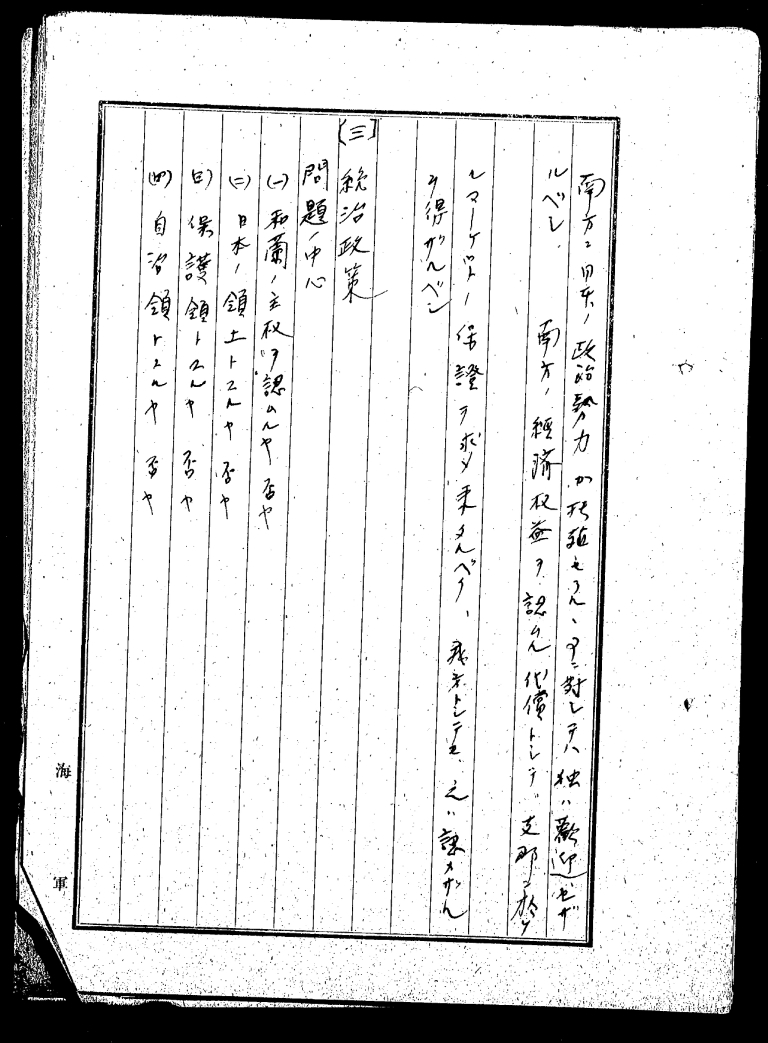 南方ニ日本ノ政治勢力ガ扶殖セラルヽヿニ対シテハ独ハ歓迎セザ
ルベシ、南方ノ経済权益ヲ認ムル代償トシテ支那ニ於ケ
ルマーケットノ保證ヲ求メ来タルベク、我方トシテモ之ハ認メザル
ヲ得ザルベシ
(三) 統治政策
問題ノ中心
(一) 和蘭ノ主权ヲ認ムルヤ否ヤ
(二) 日本ノ領土トスルヤ否ヤ
(三) 保護領トスルヤ否ヤ
(四) 自治領トスルヤ否ヤ
海軍